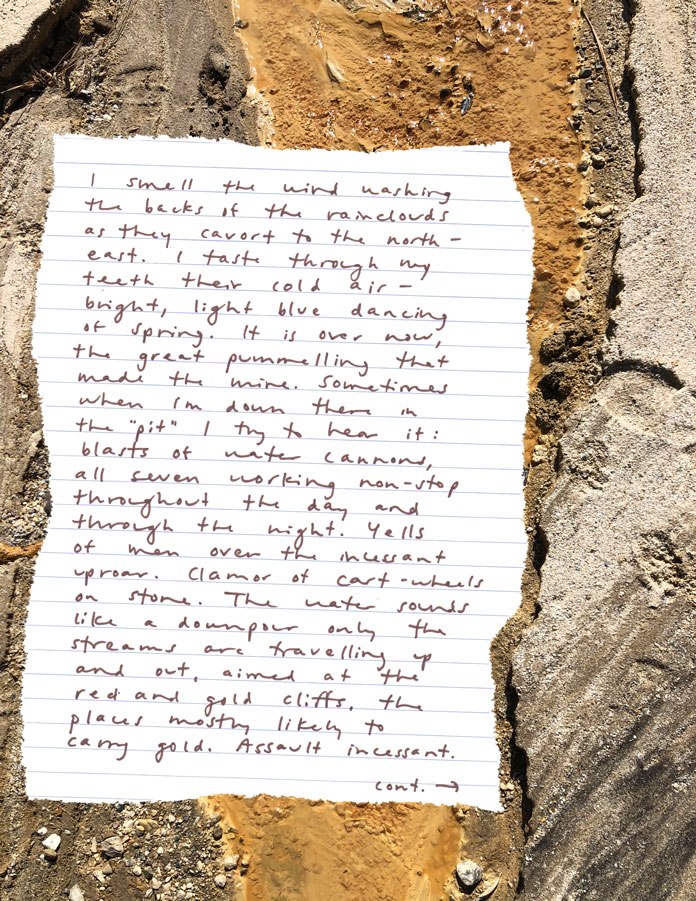 I smell the wind washing
the backs of the rainclouds
as they cavort to the north-
east. I taste through my
teeth their cold air -
bright, light blue dancing
of spring. It is over now,
the great pummelling that
made the mine. Sometimes
when I'm down there in
the "pit" I try to hear it:
blasts of water cannons,
all seven working non-stop
throughout the day and
through the night. Yells
of men over the incessant
uproar. Clamor of cart-wheels
on stone. The water sounds
like a downpour only the
streams are travelling up
and out, aimed at the
red and gold cliffs, the
places mostly likely to
carry gold. Assault incessant.
cont. →